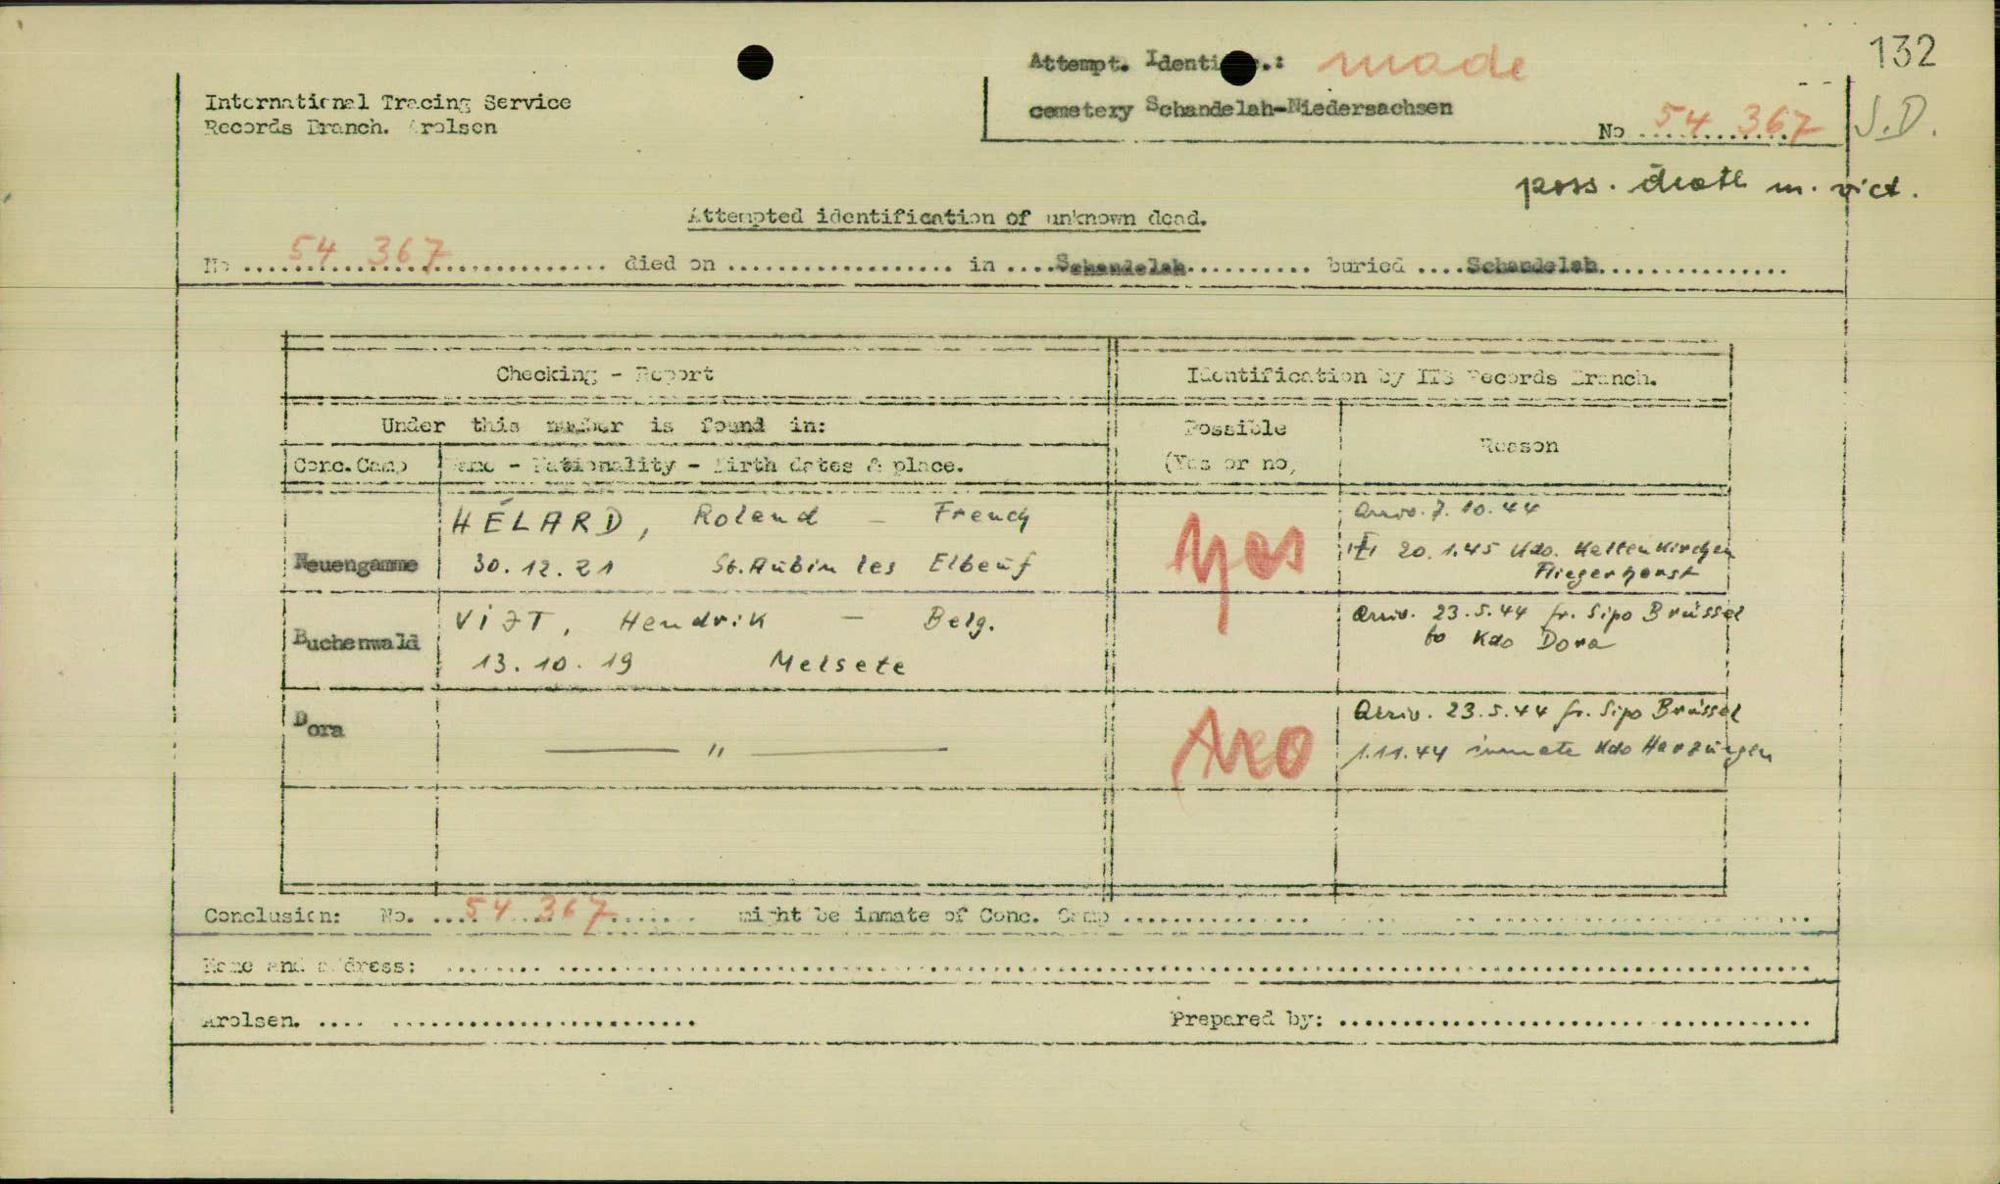 132
Attempt. Identi .: made
International Tracing Service
Records Branch. Arolsen
cemetery Schandelah-Niedersachsen
No ............ 54 367
S.D.
poss. death m. vict.
Attempted identification of unknown dead.
No ..... 54 367 ..... died on .................. in ....Schandelah.......... buried ....Schandelah...............
Checking - Report
Identification by ITS Records Branch.
Under this number is found in:
Possible
(Yes or no)
Reason
Conc. Camp
Name - Nationality - Birth dates & place.
Neuengamme
HÉLARD, Roland - French
30.12.21 St. Aubin les Elbeuf
yes
Arriv. 7.10.44
20.1.45 Kdo. Kaltenkirchen
Fliegerhorst
Buchenwald
VIJT, Hendrik - Belg.
13.10.19 Melsete
Arriv. 23.5.44 fr. Sipo Brüssel
to Kdo Dora
Dora
——— " ———
No
Arriv. 23.5.44 fr. Sipo Brüssel
1.11.44 inmate Kdo Harzungen
Conclusion: No. ....54 367....... might be inmate of Conc. Camp ...............
Name and address: ........
Arolsen. .... ........................
Prepared by: .....................................